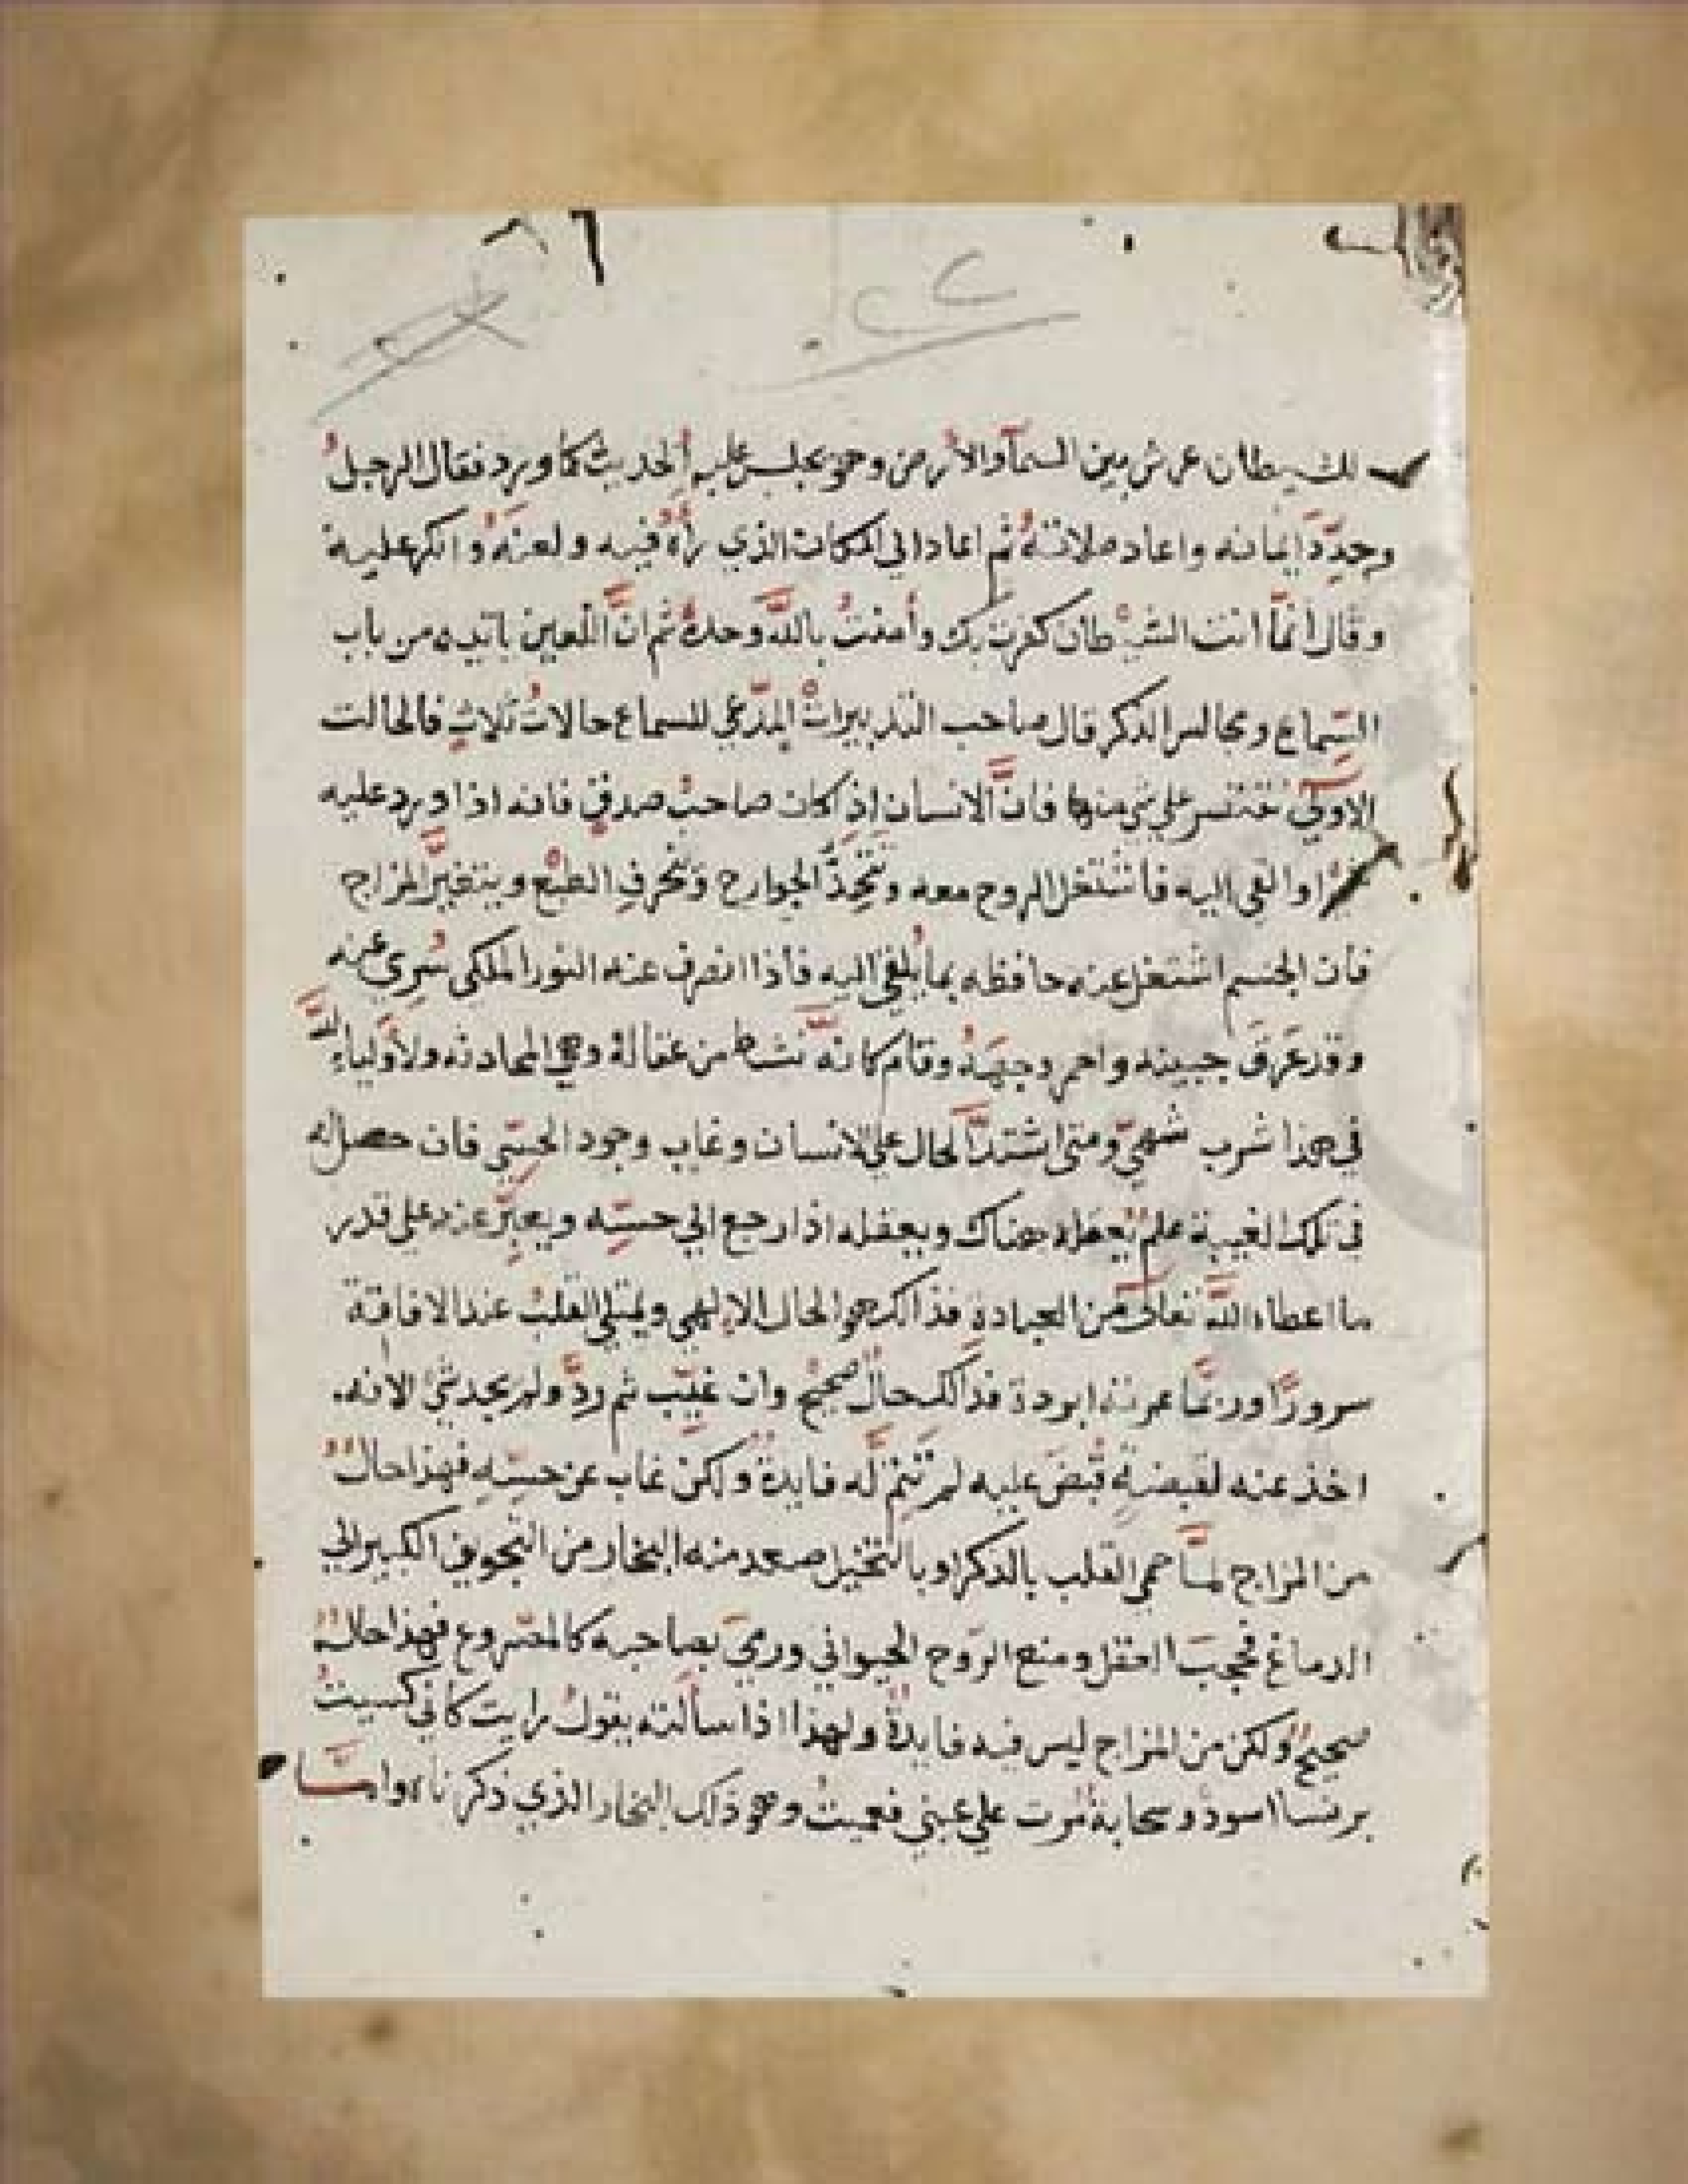 للشيطان عرش بين السمآ والارض وهو يجلس عليه الحديث كما ورد فقال الرجل
وجدّد ايمانه واعاد صلاته ثم اعاد الي المكان الذي رأه فيه ولعنه وانكر عليه
وقال انمّا انت الشيطان كفرت بك وأمنت بالله وحده ثم انّ اللعين ياتيه من باب
السّماع ومجالس الذكر قال صاحب التدبيرات المدّعي للسماع حالات ثلاث فالحالت
الاولي علي شي منها فانّ الانسان اذ كان صاحب صدق فانه اذا ورد عليه
والقي اليه فاشتغل الروح معه الجوارح الطبع ويتغيّر المزاج
فان الجسم اشتغل عنه حافظه بما يلقي اليه فاذا انصرف عنه النور الملكي سري عنه
وقد عرق جبينه واحمر وجهه وقام كانّه نشط من عقاله وهي المحادثه ولأولياء اللّه
في هذا شرب شهيّ ومتي اشتدّ الحال علي الانسان وغاب وجود الحسّي فان حصل له
في تلك الغيبة علم يعقله هناك ويعقله اذا رجع الي حسّه ويعبّر عنه علي قدر
ما اعطاه اللّه تعالى من العبادة فذالك هو الحال الالهي ويمتلي القلب عند الافاقة
سرورًا وربمّا برودة فذالك حال صحيح وان غيّب ثم ردّ ولم يجد شي الا انه
اخذ عنه لقبضة قبض عليه لم تتم له فايدة ولكن غاب عن حسّه فهذا حال
من المزاج لمّا حمي القلب بالذكر او بالتخيل صعد منه البخار من التجويف الكبير الي
الدماغ فحجب العقل ومنع الروح الحيواني ورمي بصاحبه كالمصروع فهذا حال
صحيح ولكن من المزاج ليس فيه فايدة ولهذا اذا سألته يقول رايت كاني كسيت
برنسا اسود وسحابة مرت علي عيني فعميت وهو ذلك البخار الذي ذكرناه وامّا